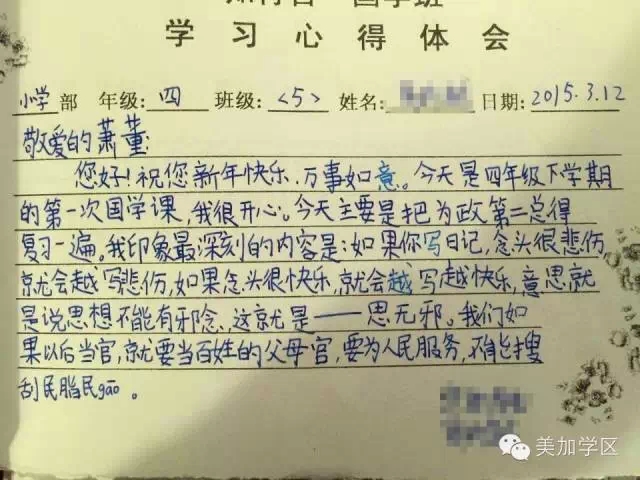 学习心得体会
小学部 年级:四 班级:<5> 姓名: 日期:2015.3.12
敬爱的萧董:
您好!祝您新年快乐,万事如意。今天是四年级下学期
的第一次国学课,我很开心。今天主要是把为政第二总得
复习一遍。我印象最深刻的内容是:如果你写日记,念头很悲伤
就会越写悲伤,如果念头很快乐,就会越写越快乐,意思就
是说思想不能有邪念,这就是——思无邪。我们如
果以后当官,就要当百姓的父母官,要为人民服务,不能搜
刮民脂民gāo。
美加学区